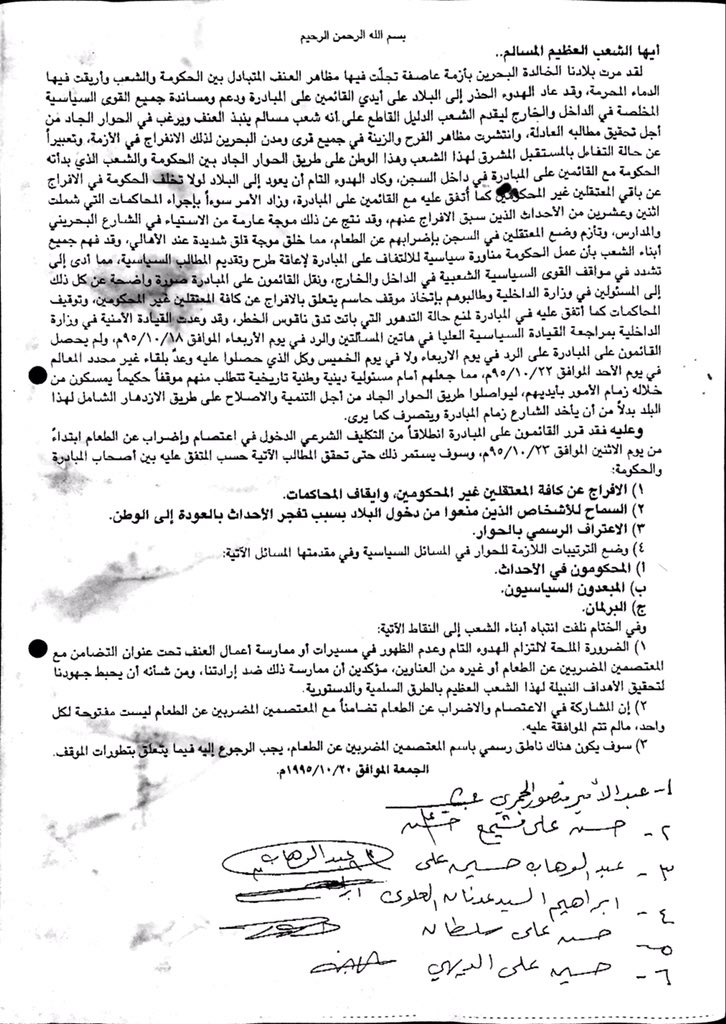 بسم الله الرحمن الرحيم
أيها الشعب العظيم المسالم..
لقد مرت بلادنا الخالدة البحرين بأزمة عاصفة تجلّت فيها مظاهر العنف المتبادل بين الحكومة والشعب وأريقت فيها
الدماء المحرمة، وقد عاد الهدوء الحذر إلى البلاد على أيدي القائمين على المبادرة ودعم ومساندة جميع القوى السياسية
المخلصة في الداخل والخارج ليقدم الشعب الدليل القاطع على أنه شعب مسالم ينبذ العنف ويرغب في الحوار الجاد من
أجل تحقيق مطالبه العادلة، وانتشرت مظاهر الفرح والزينة في جميع قرى ومدن البحرين لذلك الانفراج في الأزمة، وتعبيراً
عن حالة التفاءل بالمستقبل المشرق لهذا الشعب وهذا الوطن على طريق الحوار الجاد بين الحكومة والشعب الذي بدأته
الحكومة مع القائمين على المبادرة في داخل السجن، وكاد الهدوء التام أن يعود إلى البلاد لولا تخلف الحكومة في الافراج
عن باقي المعتقلين غير المحكومين كما أتفق عليه مع القائمون على المبادرة، وزاد الأمر سوءاً بإجراء المحاكمات التي شملت
اثنين وعشرين من الأحداث الذين سبق الافراج عنهم، وقد نتج عن ذلك موجة عارمة من الاستياء في الشارع البحريني
والمدارس، وتأزم وضع المعتقلين في السجن بإضرابهم عن الطعام، مما خلق موجة قلق شديدة عند الأهالي، وقد فهم جميع
أبناء الشعب بأن عمل الحكومة مناورة سياسية للالتفاف على المبادرة لإعاقة طرح وتقديم المطالب السياسية، مما أدى إلى
تشدد في مواقف القوى السياسية الشعبية في الداخل والخارج، ونقل القائمون على المبادرة صورة واضحة عن كل ذلك
إلى المسئولين في وزارة الداخلية وطالبوهم بإتخاذ موقف حاسم يتعلق بالافراج عن كافة المعتقلين غير المحكومين، وتوقيف
المحاكمات كما أتفق عليه في المبادرة لمنع حالة التدهور التي باتت تدق ناقوس الخطر، وقد وعدت القيادة الأمنية في وزارة
الداخلية بمراجعة القيادة السياسية العليا في هاتين المسألتين والرد في يوم الأربعاء الموافق ٩٥/١٠/١٨م، ولم يحصل
القائمون على المبادرة على الرد في يوم الاربعاء ولا في يوم الخميس وكل الذي حصلوا عليه وعدٌ بلقاء غير محدد المعالم
في يوم الأحد الموافق ٩٥/١٠/٢٢م، مما جعلهم أمام مسئولية دينية وطنية تاريخية تتطلب منهم موقفاً حكيماً يمسكون من
خلاله زمام الأمور بأيديهم، ليواصلوا طريق الحوار الجاد من أجل التنمية والاصلاح على طريق الازدهار الشامل لهذا
البلد بدلاً من أن يأخذ الشارع زمام المبادرة ويتصرف كما يرى.
وعليه فقد قرر القائمون على المبادرة انطلاقاً من التكليف الشرعي الدخول في اعتصام وإضراب عن الطعام ابتداءً
من يوم الاثنين الموافق ٩٥/١٠/٢٣م، وسوف يستمر ذلك حتى تحقق المطالب الآتية حسب المتفق عليه بين أصحاب المبادرة
والحكومة:
١) الافراج عن كافة المعتقلين غير المحكومين، وايقاف المحاكمات.
٢) السماح للأشخاص الذين منعوا من دخول البلاد بسبب تفجر الأحداث بالعودة إلى الوطن.
٣) الاعتراف الرسمي بالحوار.
٤) وضع الترتيبات اللازمة للحوار في المسائل السياسية وفي مقدمتها المسائل الآتية:
أ) المحكومون في الأحداث.
ب) المبعدون السياسيون.
ج) البرلمان.
وفي الختام نلفت انتباه أبناء الشعب إلى النقاط الآتية:
١) الضرورة الملحة لالتزام الهدوء التام وعدم الظهور في مسيرات أو ممارسة أعمال العنف تحت عنوان التضامن مع
المعتصمين المضربين عن الطعام أو غيره من العناوين، مؤكدين أن ممارسة ذلك ضد إرادتنا، ومن شأنه أن يحبط جهودنا
لتحقيق الأهداف النبيلة لهذا الشعب العظيم بالطرق السلمية والدستورية.
٢) إن المشاركة في الاعتصام والاضراب عن الطعام تضامناً مع المعتصمين المضربين عن الطعام ليست مفتوحة لكل
واحد، مالم تتم الموافقة عليه.
٣) سوف يكون هناك ناطق رسمي باسم المعتصمين المضربين عن الطعام، يجب الرجوع إليه فيما يتعلق بتطورات الموقف.
الجمعة الموافق ١٩٩٥/١٠/٢٠م.
١- عبد الأمير منصور الجمري
٢- حسن علي مشيمع
٣- عبد الوهاب حسين علي عبد الوهاب
٤- ابراهيم السيد عدنان العلوي
٥- حسن علي سلطان
٦- حسين علي الديهي